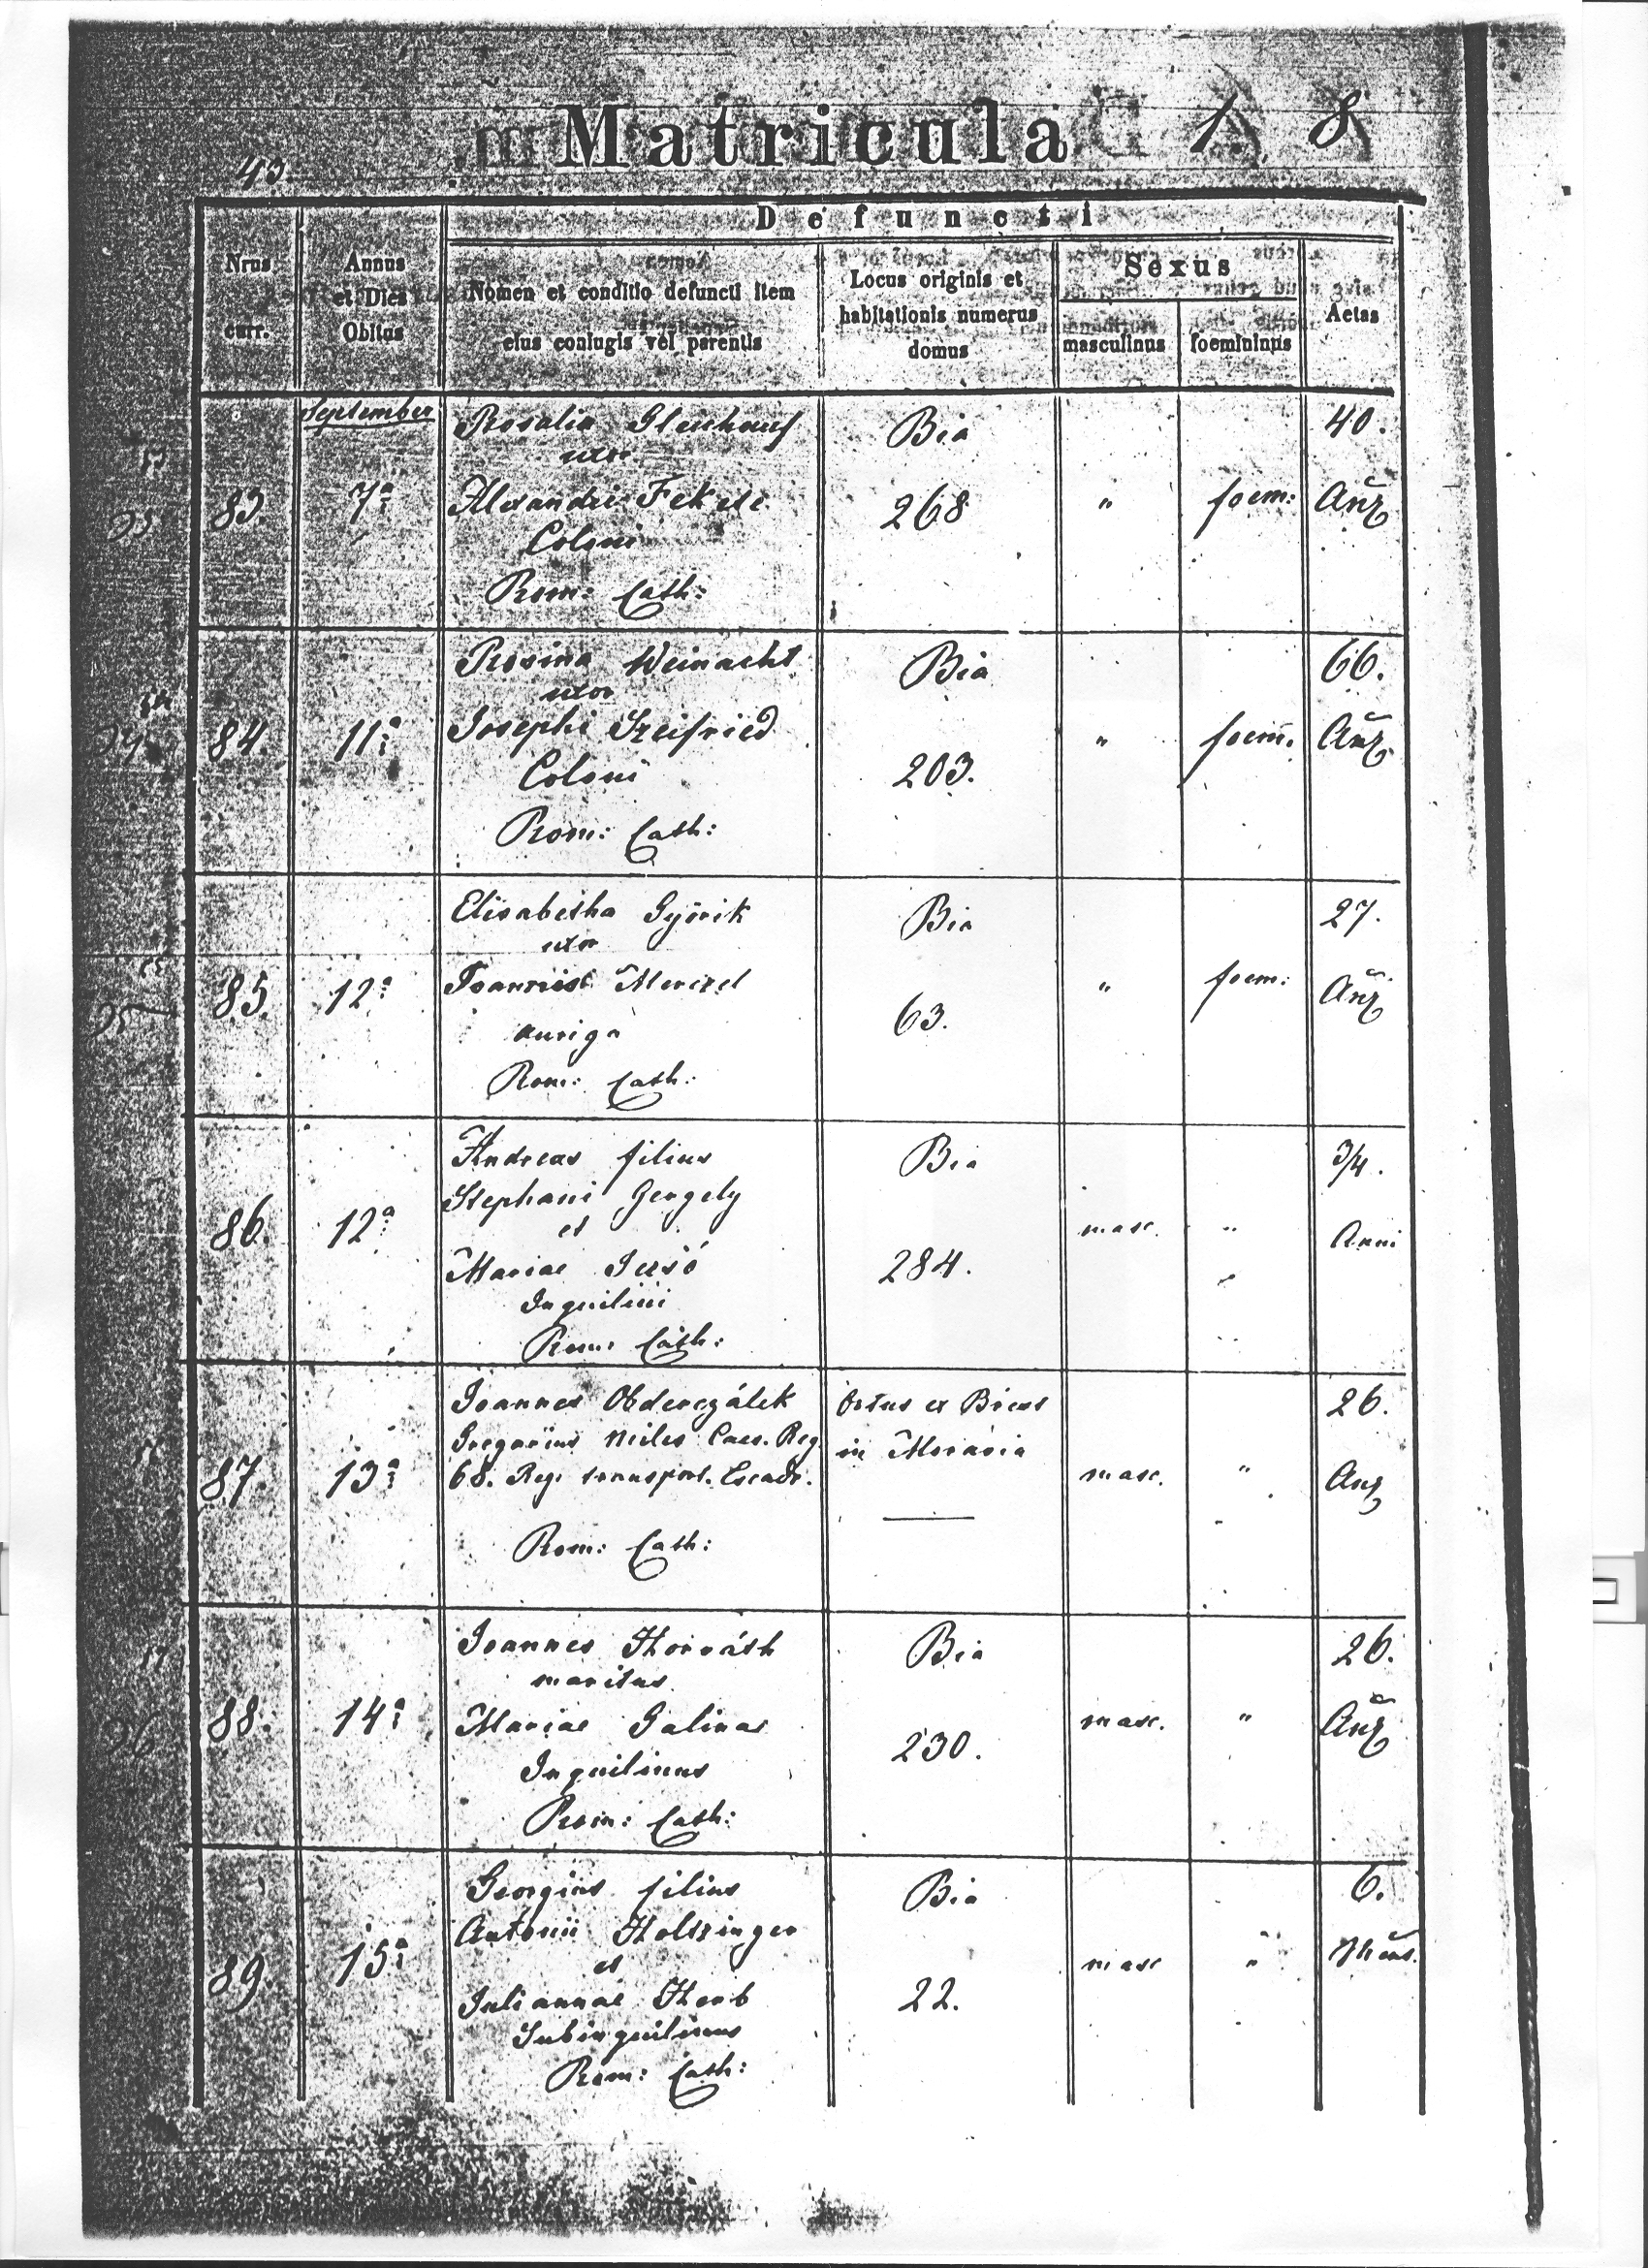 Matricula 1 8
43
Defuncti
Nrus curr.
Annus et Dies Obitus
Nomen et conditio defuncti item eius coniugis vel parentis
Locus originis et habitationis numerus domus
Sexus
masculinus
foemininus
Aetas
September
83.
7a
Rosalia
uxor
Alexandri Fekete
Coloni
Rom: Cath:
Bia
268
"
foem:
40.
84.
11a
Rosina Weinacht
uxor
Josephi Szeifried
Coloni
Rom: Cath:
Bia
203.
"
foem.
66.
85.
12a
Elisabetha Györik
uxor
auriga
Rom: Cath:
Bia
63.
"
foem:
27.
86.
12a
Andreas filius
Stephani Gergely
et
Mariae
Inquilini
Rom: Cath:
Bia
284.
masc.
"
3/4.
Anni
87.
13a
Joannes
Gregarius Miles Caes. Reg.
68. Reg. transport. Escadr.
Rom: Cath:
Ortus ex
in Moravia
masc.
"
26.
88.
14a
Joannes Horváth
maritus
Mariae Galinas
Inquilinus
Rom: Cath:
Bia
230.
masc.
"
26.
89.
15a
Georgius filius
Antonii Holtzinger
et
Juliannae Herb
Subinquilinus
Rom: Cath:
Bia
22.
masc
"
6.